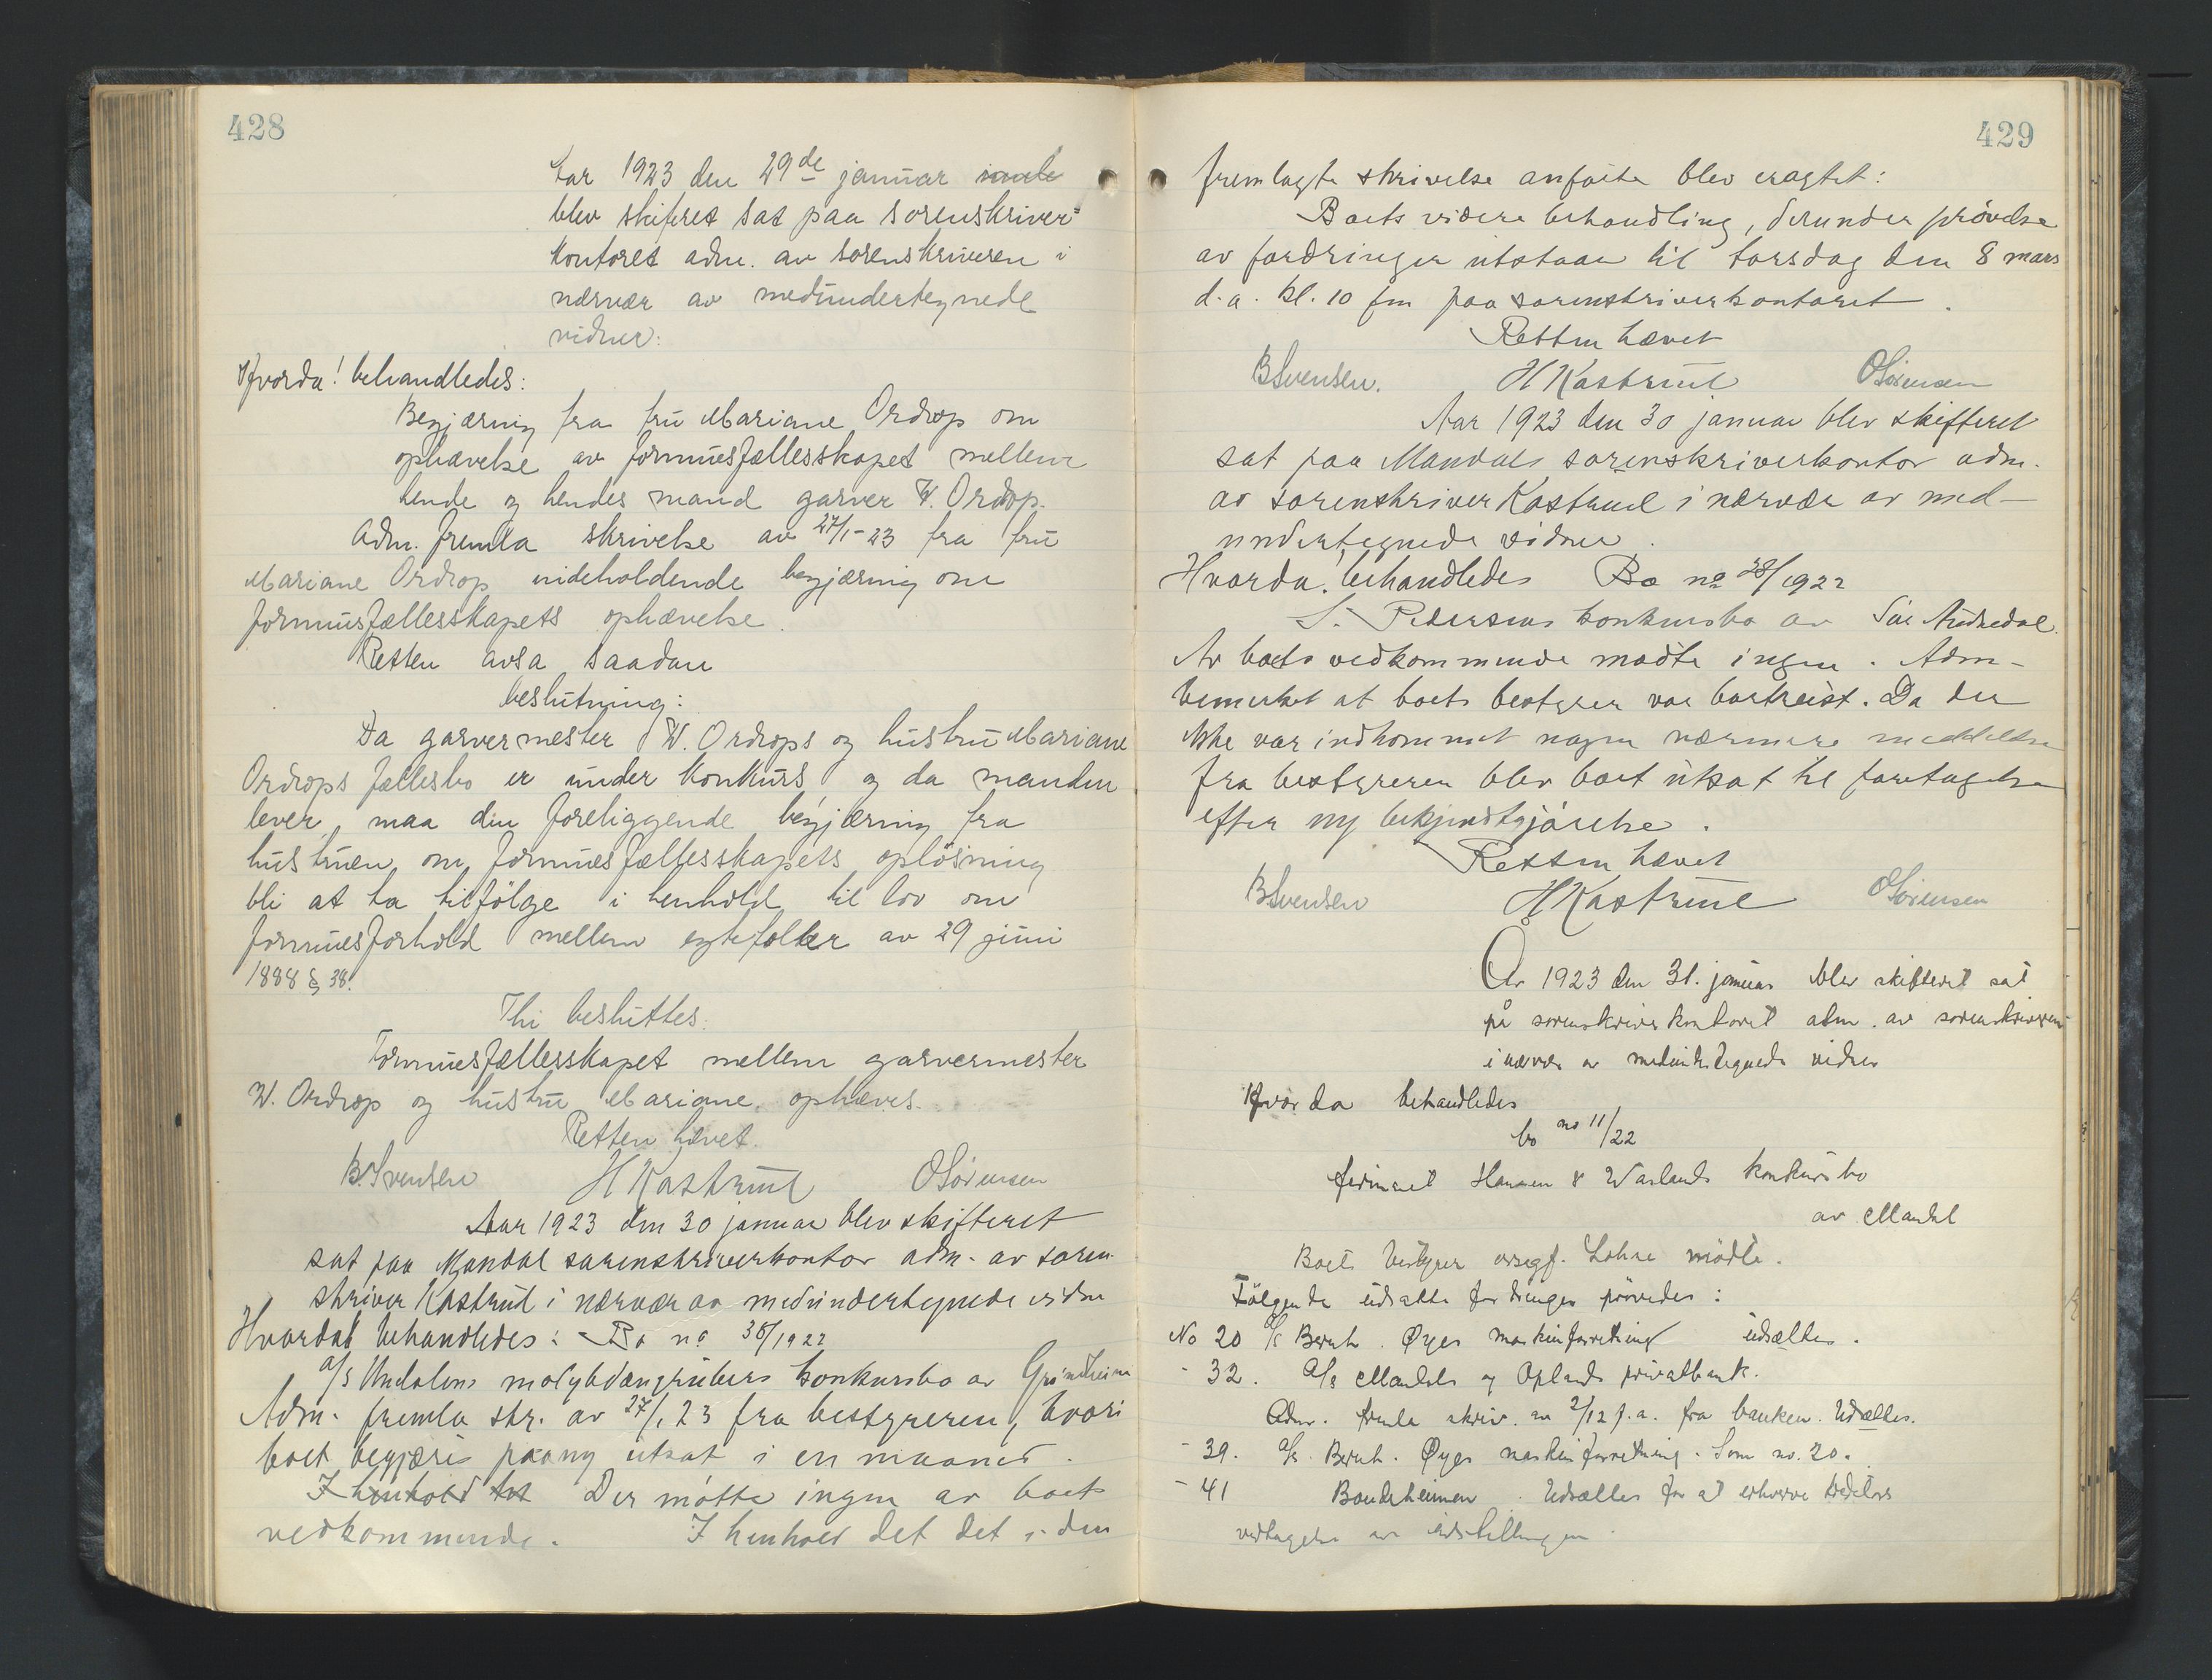 428
Aar 1923 den 29de januar
blev skifteret sat paa sorenskriver=
kontoret adm. av sorenskriveren i
nærvær av medundertegnede
vidner:
Hvorda! behandledes:
Begjæring fra fru Mariane Ordrop om
ophævelse av formuesfællesskapet mellem
hende og hendes mand garver W. Ordrop.
Adm. fremla skrivelse av 27/1-23 fra fru
Mariane Ordrop indeholdende begjæring om
formuesfællesskapets ophævelse.
Retten avsa saadan
beslutning:
Da garvermester W. Ordrops og hustru Mariane
Ordrops fællesbo er under konkurs og da manden
lever, maa den foreliggende begjæring fra
hustruen om formuesfællesskapets opløsning
bli at ta tilfølge i henhold til lov om
formuesforhold mellem egtefolker av 29 juni
1888 § 38.
Thi besluttes:
Formuesfællesskapet mellem garvermester
W. Ordrop og hustru Mariane, ophæves.
Retten hævet.
B.Svensen H Kastrud O Sørensen
Aar 1923 den 30 januar blev skifteret
sat paa Mandal sorenskriverkontor adm. av soren-
skriver Kastrud i nærvær av medundertegnede vidner
Hvorda! behandledes: Bo no 36/1922
a/s Undalens molybdængrubers konkursbo av Grindheim
Adm. fremla skr. av 27/1 23 fra bestyreren, hvori
boet begjæres paany utsat i en maaned.
I henhold tet Der møtte ingen av boets
vedkommende. I henhold det det i den
429
fremlagte skrivelse anførte blev eragtet:
Boets videre behandling, derunder prøvelse
av fordringer utstaar til torsdag den 8 mars
d.a. kl. 10 fm paa sorenskriverkontoret.
Retten hævet
B Svensen. H Kastrud O Sørensen
Aar 1923 den 30 januar blev skifteret
sat paa Mandals sorenskriverkontor adm.
av sorenskriver Kastrud i nærvær av med-
undertegnede vidner.
Hvorda! behandledes Bo no 28/1922
S. Pedersens konkursbo av Sør Audnedal.
Av boets vedkommende mødte ingen. Adm-
bemerket at boets bestyrer var bortreist. Da der
ikke var indkommet nogen nærmere meddelelse
fra bestyreren blev boet utsat til foretagelse
efter ny bekjendtgjørelse.
Retten hævet
B Svensen H Kastrud O Sørensen
År 1923 den 31. januar blev skifteret sat
på sorenskriverkontoret adm. av sorenskriveren
i nærvær av medundertegnede vidner
Hvorda behandledes
bo no 11/22
firmaet Hansen & Warlands konkursbo
av Mandal
Boets bestyrer orsagf. Lohne mødte.
Følgende udsatte fordringer prøvedes:
No 20 a/s Bernh. Øyes maskinforretning udsættes.
- 32. a/s Mandals og Oplands privatbank.
Adm. fremla skriv. av 2/12 f.a. fra banken. Udsættes.
- 39. a/s. Bernh. Øyes maskinforretning. Som no. 20.
- 41 Bondeheimen. Udsættes for at erhverve kreditors
vedtagelse av indstillingen.